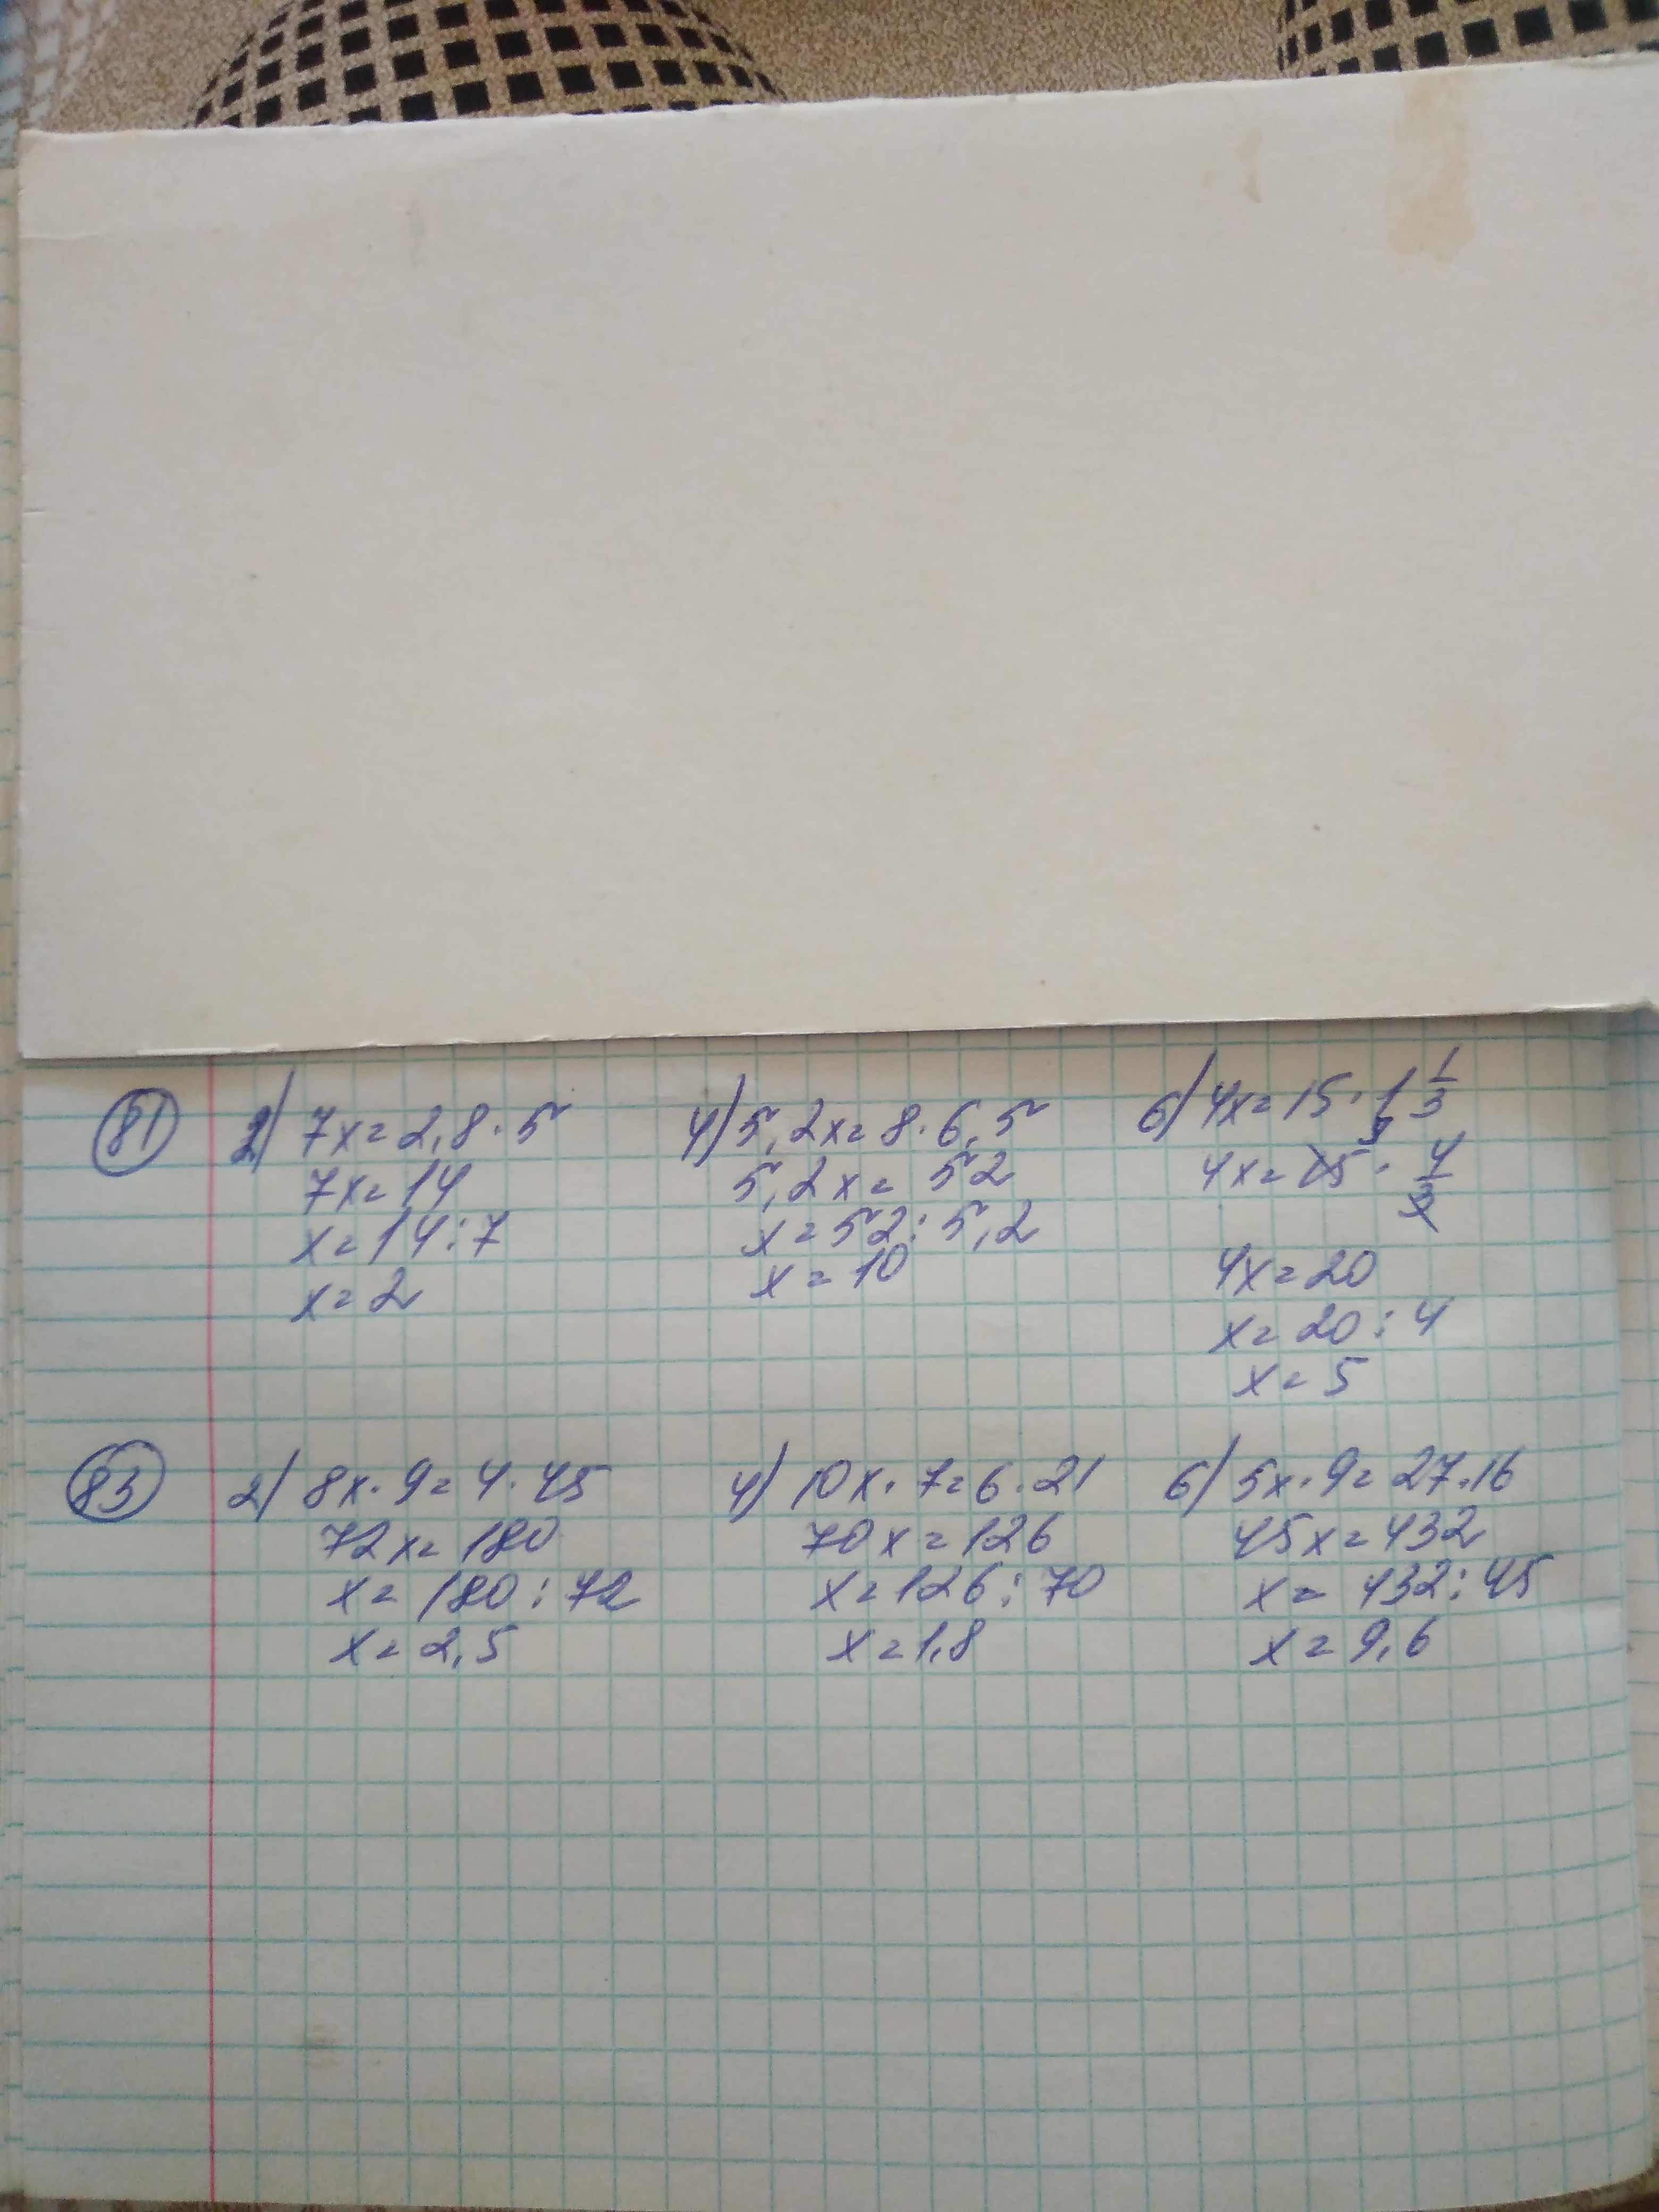 81 2) 7x=2,8·5
7x=14
x=14:7
x=2
4) 5,2x=8·6,5
5,2x=52
x=52:5,2
x=10
6) 4x=15·1 1/3
4x=15 5 · 4/3
4x=20
x=20:4
x=5
83 2) 8x·9=4·45
72x=180
x=180:72
x=2,5
4) 10x·7=6·21
70x=126
x=126:70
x=1,8
6) 5x·9=27·16
45x=432
x=432:45
x=9,6